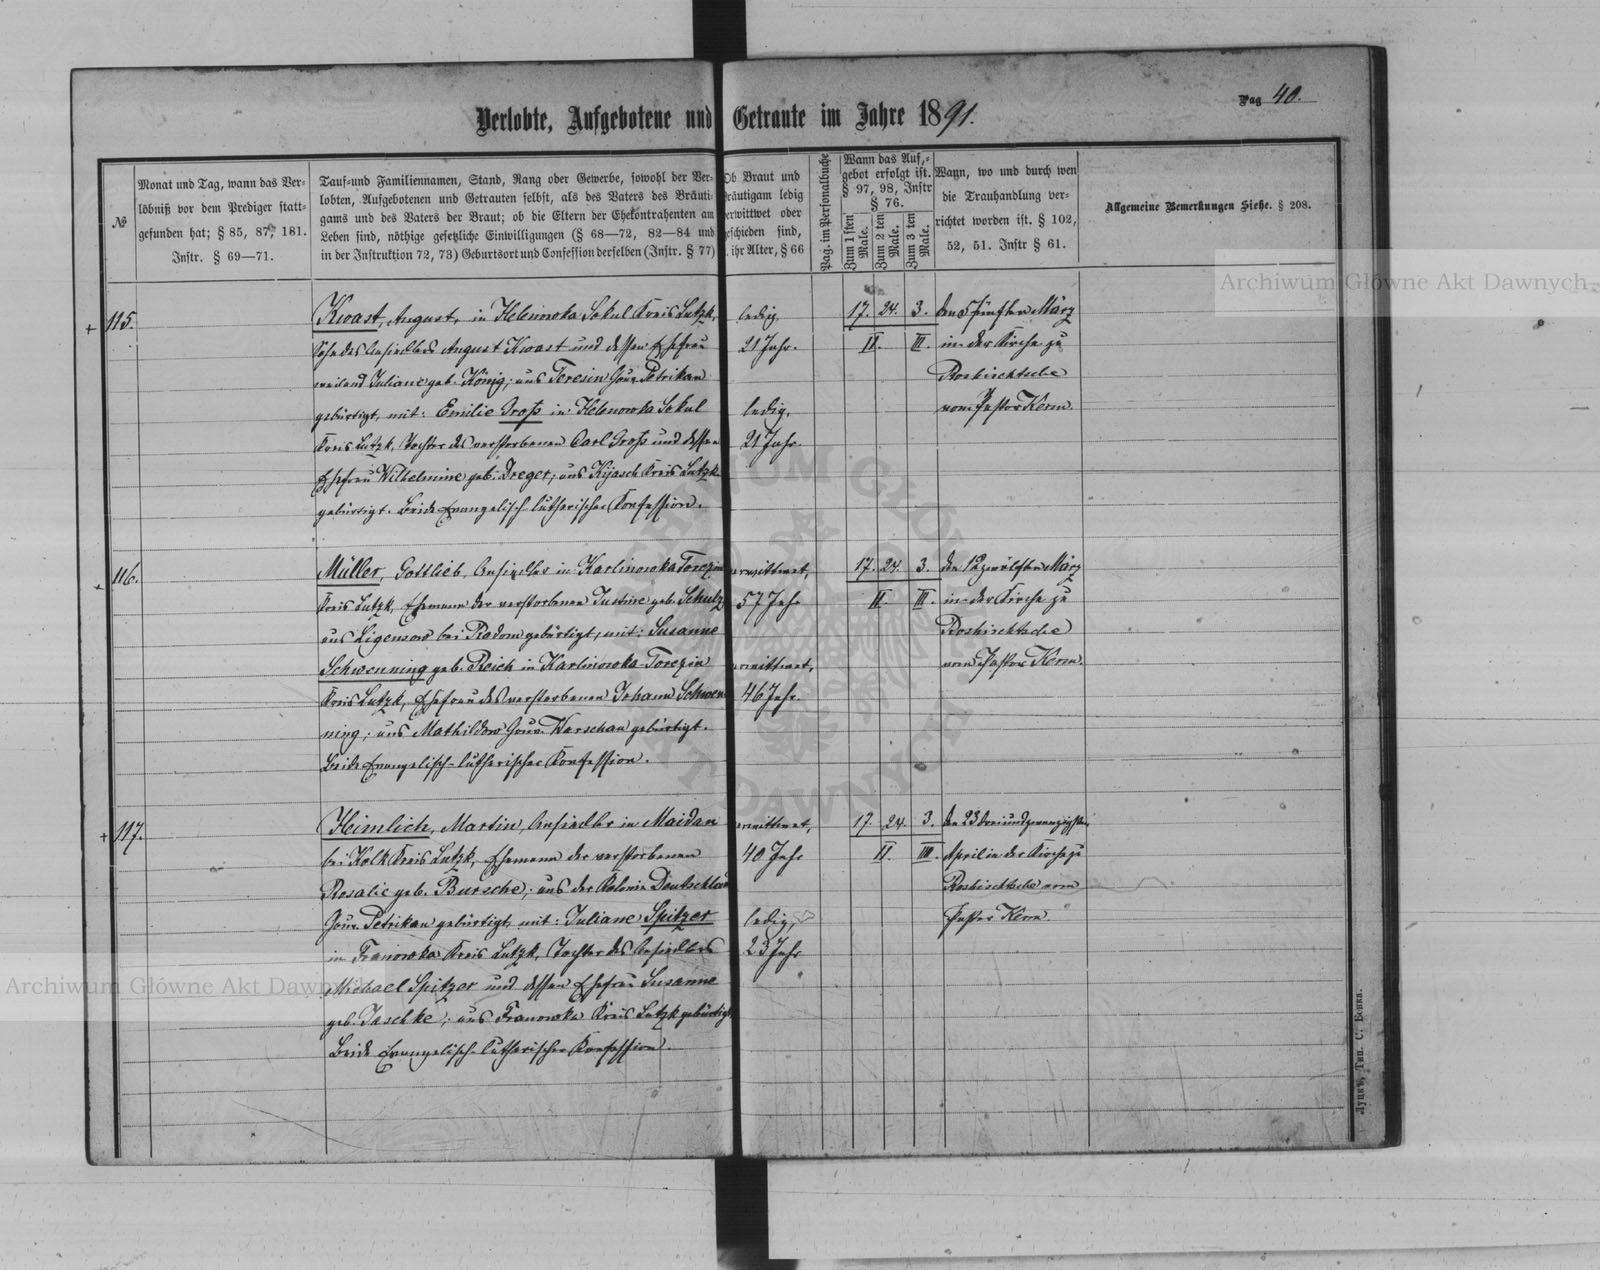 Pag 40.
Verlobte, Aufgebotene und Getraute im Jahre 1891.
№
Monat und Tag, wann das Ver-
löbniß vor dem Prediger statt-
gefunden hat; § 85, 87, 181.
Instr. § 69—71.
Tauf- und Familiennamen, Stand, Rang oder Gewerbe, sowohl der Ver-
lobten, Aufgebotenen und Getrauten selbst, als des Vaters des Bräuti-
gams und des Vaters der Braut; ob die Eltern der Ehekontrahenten am
Leben sind, nöthige gesetzliche Einwilligungen (§ 68—72, 82—84 und
in der Instruktion 72, 73) Geburtsort und Confession derselben (Instr. § 77)
Ob Braut und
Bräutigam ledig
verwittwet oder
geschieden sind,
ihr Alter, § 66
Pag. im Personalbuche
Wann das Auf-
gebot erfolgt ist.
§ 97, 98, Instr
§ 76.
Zum 1sten Male.
Zum 2ten Male.
Zum 3ten Male.
Wann, wo und durch wen
die Trauhandlung ver-
richtet worden ist. § 102,
52, 51. Instr § 61.
Allgemeine Bemerkungen Siehe. § 208.
+ 115.
Kwast, August, in Helenowka Sokul Kreis Lutzk,
Sohn des Ansiedlers August Kwast und dessen Ehefrau
weiland Juliane geb. König; aus Teresin Gouv. Petrikau
gebürtigt, mit: Emilie Groß in Helenowka Sokul
Kreis Lutzk, Tochter des verstorbenen Carl Groß und dessen
Ehefrau Wilhelmine geb. Dreger, aus Kijasch Kreis Lutzk
gebürtigt. Beide Evangelisch-lutherischer Konfession.
ledig.
21 Jahr.
ledig.
21 Jahr.
17. 24. 3.
II. III.
den 5 fünften März
in der Kirche zu
Roshischtsche
vom Pastor Kerm.
+ 116.
Müller, Gottlieb, Ansiedler in Karlinowka Torezin
Kreis Lutzk, Ehemann der verstorbenen Justine geb. Schulz
aus Ligensow bei Radom gebürtigt, mit: Susanne
Schwenning geb. Reich in Karlinowka-Torezin
Kreis Lutzk, Ehefrau des verstorbenen Johann Schwen-
ning; aus Mathildow Gouv. Warschau gebürtigt.
Beide Evangelisch-lutherischer Konfession.
verwittwet,
57 Jahr
verwittwet,
46 Jahr.
17. 24. 3.
II. III.
den 12 zwölften März
in der Kirche zu
Roshischtsche
vom Pastor Kerm.
+ 117.
Heimlich, Martin, Ansiedler in Maidan
bei Kolk Kreis Lutzk, Ehemann der verstorbenen
Rosalie geb. Bursche; aus der Kolonie Deutschlan
Gouv. Petrikau gebürtigt, mit: Juliane Spitzer
in Franowka Kreis Lutzk, Tochter des Ansiedlers
Michael Spitzer und dessen Ehefrau Susanne
geb. Jaschke; aus Franowka Kreis Lutzk gebürtigt
Beide Evangelisch-lutherischer Konfession.
verwittwet,
40 Jahr
ledig,
23 Jahr
17. 24. 3.
II. III.
den 23 dreiundzwanzigsten
April in der Kirche zu
Roshischtsche vom
Pastor Kerm.
Луцкъ, Тип. С. Бонка.
Archiwum Główne Akt Dawnych
Archiwum Główne Akt Dawnych
ARCHIWUM GŁÓWNE
AKT DAWNYCH